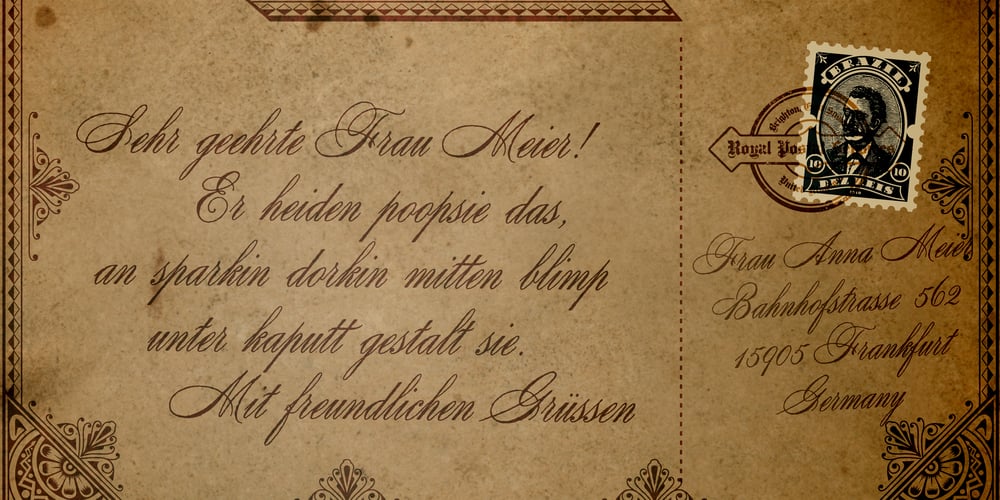 Sehr geehrte Frau Meier!
Er heiden poopsie das,
an sparkin dorkin mitten blimp
unter kaputt gestalt sie.
Mit freundlichen Grüssen
BRAZIL
10 10
DEZ REIS
Brighton
Royal Pos
Frau Anna Meier
Bahnhofstrasse 562
15905 Frankfurt
Germany